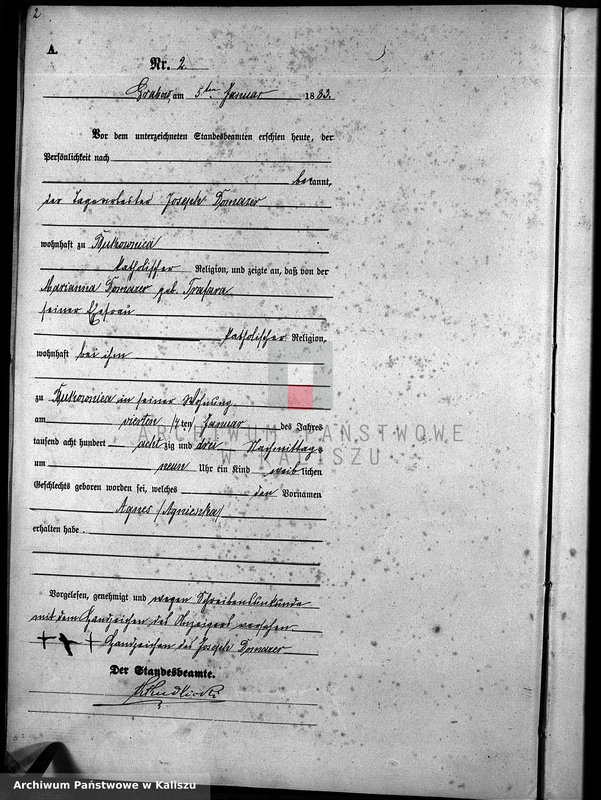 2
A.
Nr. 2
Grabow, am 5ten Januar 1883.
Vor dem unterzeichneten Standesbeamten erschien heute, der
Persönlichkeit nach
bekannt,
der Tagearbeiter Joseph Domaxer
wohnhaft zu Bukownica
katholischer Religion, und zeigte an, daß von der
Marianna Domaxer geb. Trafara
seiner Ehefrau
katholischer Religion,
wohnhaft bei ihm
zu Bukownica in seiner Wohnung
am vierten /4ten/ Januar des Jahres
tausend acht hundert achtzig und drei Nachmittags
um neun Uhr ein Kind weiblichen
Geschlechts geboren worden sei, welches den Vornamen
Agnes /Agnieszka/
erhalten habe.
Vorgelesen, genehmigt und wegen Schreibensunkunde
mit dem Handzeichen des Anzeigers versehen.
+ + + Handzeichen des Joseph Domaxer
Der Standesbeamte.
ARCHIWUM PAŃSTWOWE
W KALISZU
Archiwum Państwowe w Kaliszu